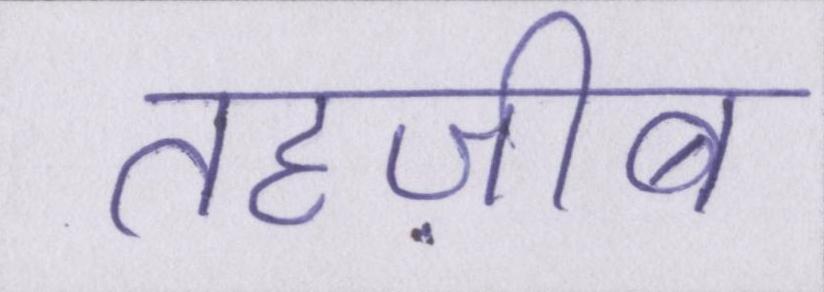 तहज़ीब